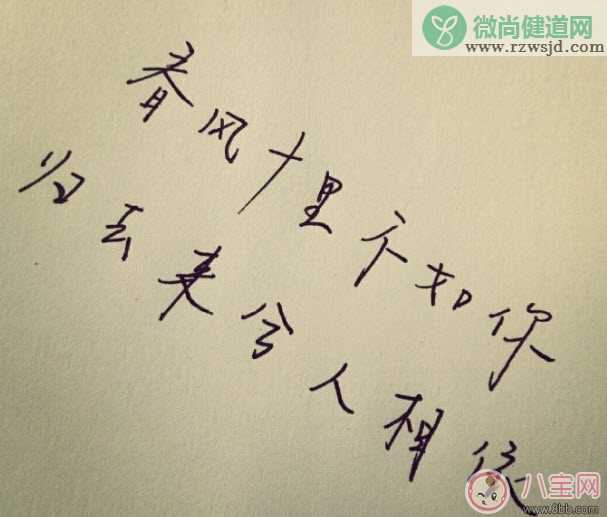 微尚健道网
www.rzwsjd.com
春风十里不如你
归去来兮人相依
八宝网
www.8bb.com